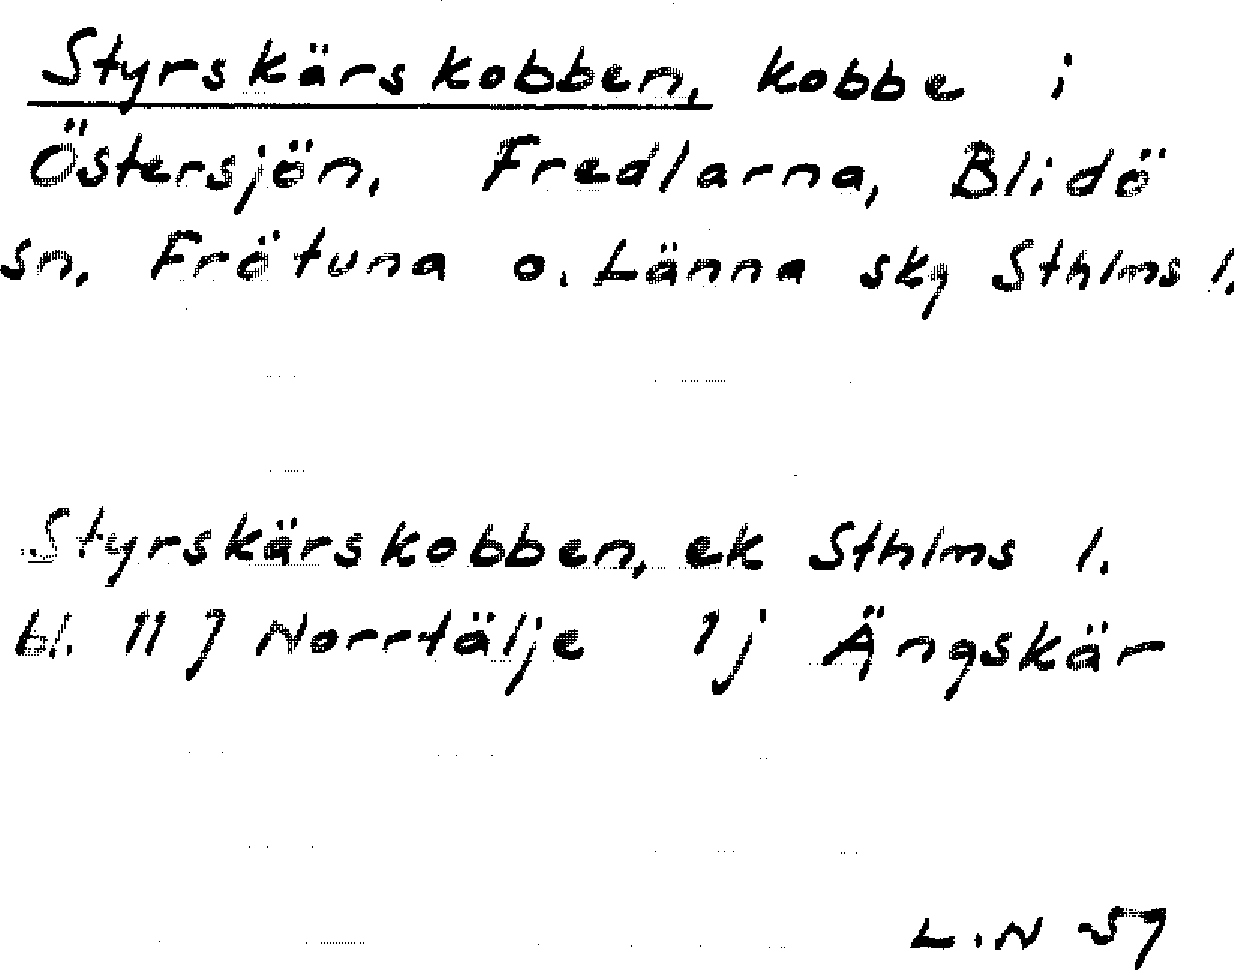 Styrskärskobben, kobbe i
Östersjön. Fredlarna, Blidö
sn. Frötuna o. Länna skg Sthlms l.
Styrskärskobben, ek Sthlms l.
bl. 117 Norrtälje 1j Ängskär
L.N 57